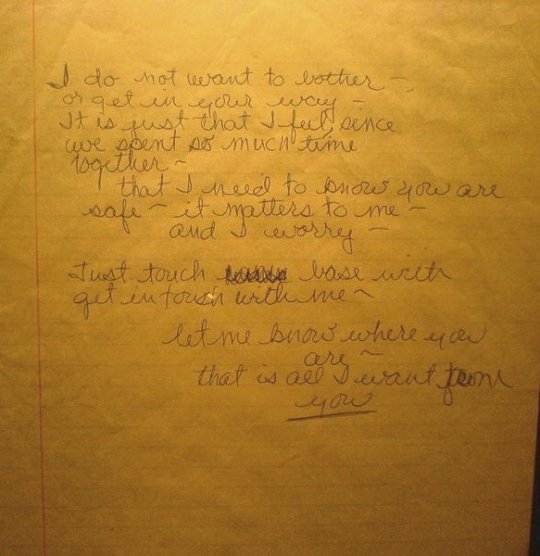 I do not want to bother -
or get in your way -
It is just that I feel, since
we spent so much time
together -
that I need to know you are
safe - it matters to me -
and I worry -
Just touch base with
get in touch with me -
let me know where you
are -
that is all I want from
you